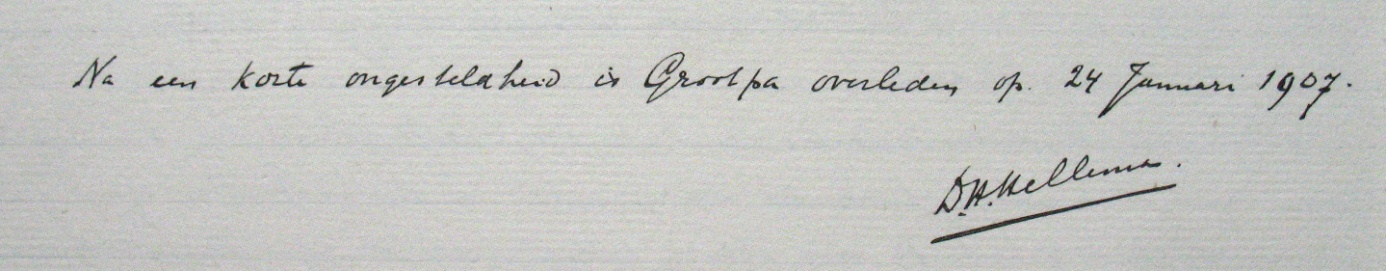 Na een korte ongesteldheid is Grootpa overleden op. 24 Januari 1907.
D.H. Hellema.